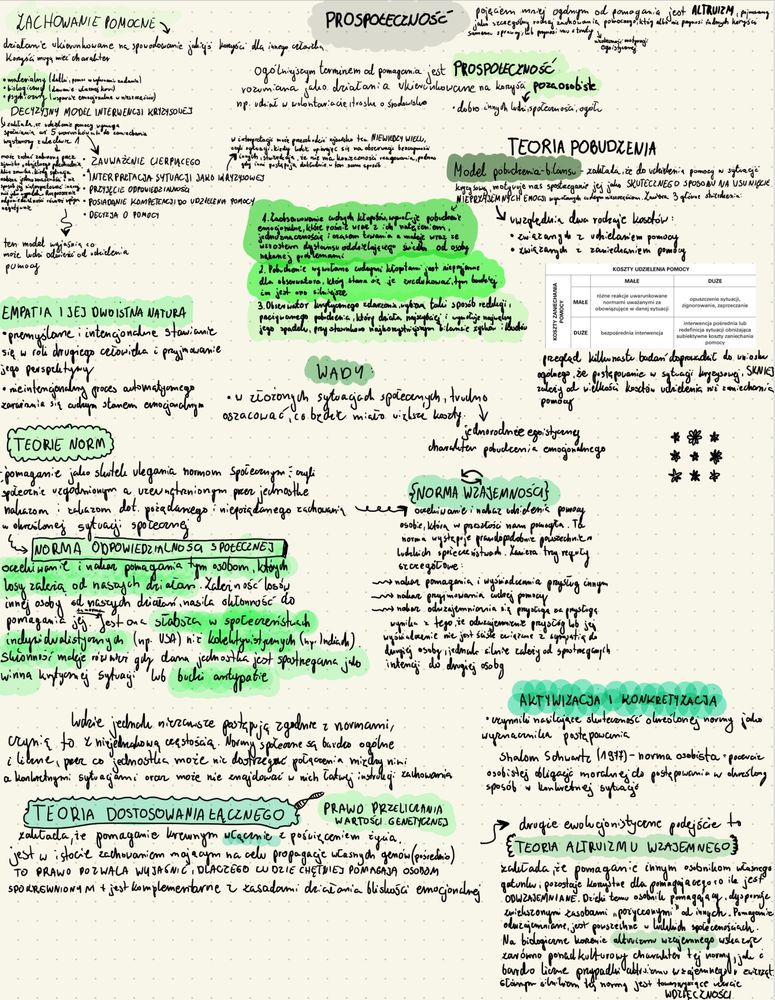 ZACHOWANIE POMOCNE
działanie ukierunkowane na spowodowanie jakiejś korzyści dla innego człowieka.
Korzyści mogą mieć charakter
• materialny
• biologiczny
• psychiczny
DECYZYJNY MODEL INTERWENCJI KRYZYSOWEJ
zakłada, że udzielenie pomocy wymaga
spełnienia aż 5 warunków
• ZAUWAŻENIE CIERPIĄCEGO
• INTERPRETACJA SYTUACJI JAKO KRYZYSOWEJ
• PRZYJĘCIE ODPOWIEDZIALNOŚCI
• POSIADANIE KOMPETENCJI DO UDZIELENIA POMOCY
• DECYZJA O POMOCY
ten model wyjaśnia co
może ludzi odwieść od udzielenia
pomocy
PROSPOŁECZNOŚĆ
pojęciem mniej ogólnym od pomagania jest ALTRUIZM, pojmowany
jako szczególny rodzaj zachowania pomocnego, który albo nie przynosi żadnych korzyści
samemu sprawcy, lub przynosi mu straty
Ogólniejszym terminem od pomagania jest PROSPOŁECZNOŚĆ
rozumiana jako działania ukierunkowane na korzyści pozaosobiste
np. udział w wolontariacie, troska o środowisko
• dobro innych ludzi, społeczności, ogółu
w interpretacji może przeszkodzić zjawisko tzw NIEWIEDZY WIELU,
TEORIA POBUDZENIA
Model pobudzenia-bilansu - zakłada, że do udzielenia pomocy w sytuacji
kryzysowej, motywuje nas spostrzeganie jej jako SKUTECZNEGO SPOSOBU NA USUNIĘCIE
NIEPRZYJEMNYCH EMOCJI Zawiera 3 główne stwierdzenia:
uwzględnia dwa rodzaje kosztów:
• związanych z udzielaniem pomocy
• związanych z zaniechaniem pomocy
1. Zaobserwowanie cudzych kłopotów, wywołuje pobudzenie
emocjonalne, które rośnie wraz z ich nasileniem,
jednoznacznością i czasem trwania a maleje wraz ze
wzrostem dystansu oddzielającego świadka od osoby
nękanej problemami
2. Pobudzenie wywołane cudzymi kłopotami jest nieprzyjemne
dla obserwatora, który stara się je zredukować, tym bardziej
im jest ono silniejsze
3. Obserwator kryzysowego zdarzenia, wybiera taki sposób redukcji
przeżywanego pobudzenia, który działa najszybciej i wywołuje najwięcej
jego spadku, przy stosunkowo najkorzystniejszym bilansie zysków i kosztów
KOSZTY UDZIELENIA POMOCY
MAŁE DUŻE
KOSZTY ZANIECHANIA POMOCY
MAŁE różne reakcje uwarunkowane normami uważanymi za obowiązujące w danej sytuacji opuszczenie sytuacji, zignorowanie, zaprzeczanie
DUŻE bezpośrednia interwencja interwencja pośrednia lub redefinicja sytuacji obniżająca subiektywne koszty zaniechania pomocy
przegląd kilkunastu badań doprowadził do wniosku
ogólnego, że postępowanie w sytuacji kryzysowej, SILNIEJ
zależy od wielkości kosztów udzielenia niż zaniechania
pomocy
EMPATIA I JEJ DWOISTA NATURA
• przemyślane i intencjonalne stawianie
się w roli drugiego człowieka i przyjmowanie
jego perspektywy
• nieintencjonalny proces automatycznego
zarażania się cudzym stanem emocjonalnym
WADY:
• w złożonych sytuacjach społecznych, trudno
oszacować, co będzie miało wyższe koszty.
jednorodnie egoistyczny
charakter pobudzenia emocjonalnego
TEORIE NORM
pomaganie jako skutek ulegania normom społecznym: czyli
społecznie uzgodnionym a uzewnętrznionym przez jednostkę
nakazom i zakazom dot. pożądanego i niepożądanego zachowania
w określonej sytuacji społecznej
NORMA ODPOWIEDZIALNOŚCI SPOŁECZNEJ
oczekiwanie i nakaz pomagania tym osobom, których
losy zależą od naszych działań. Zależność losów
innej osoby od naszych działań, nasila skłonność do
pomagania jej. Jest ona słabsza w społeczeństwach
indywidualistycznych (np. USA) niż kolektywistycznych (np. Indiach)
Skłonność maleje również gdy dana jednostka jest spostrzegana jako
winna krytycznej sytuacji lub budzi antypatie
{NORMA WZAJEMNOŚCI}
oczekiwanie i nakaz udzielenia pomocy
osobie, która w przeszłości nam pomogła. Ta
norma występuje prawdopodobnie powszechnie w
ludzkich społeczeństwach. Zawiera trzy reguły
szczegółowe:
nakaz pomagania i wyświadczania przysług innym
nakaz przyjmowania cudzej pomocy
nakaz odwzajemniania się przysługą za przysługę
wynika z tego, że odwzajemnianie przysług lub jej
wyświadczanie nie jest ściśle związane z sympatią do
drugiej osoby, jednak silnie zależy od spostrzeganych
intencji do drugiej osoby
Ludzie jednak nie zawsze postępują zgodnie z normami,
czynią to z niejednakową częstością. Normy społeczne są bardzo ogólne
i liczne, przez co jednostka może nie dostrzegać połączenia między nimi
a konkretnymi sytuacjami oraz może nie znajdować w nich łatwej instrukcji zachowania
AKTYWIZACJA I KONKRETYZACJA
• czynniki nasilające skuteczność określonej normy jako
wyznacznika postępowania
Shalom Schwartz (1977) - norma osobista - poczucie
osobistej obligacji moralnej do postępowania w określony
sposób w konkretnej sytuacji
TEORIA DOSTOSOWANIA ŁĄCZNEGO
PRAWO PRZELICZANIA
WARTOŚCI GENETYCZNEJ
zakłada, że pomaganie krewnym włącznie z poświęceniem życia,
jest w istocie zachowaniem mającym na celu propagację własnych genów (pośrednio)
TO PRAWO POZWALA WYJAŚNIĆ, DLACZEGO LUDZIE CHĘTNIEJ POMAGAJĄ OSOBOM
SPOKREWNIONYM + jest komplementarne z zasadami działania bliskości emocjonalnej
drugie ewolucjonistyczne podejście to
{TEORIA ALTRUIZMU WZAJEMNEGO}
zakłada, że pomaganie innym osobnikom własnego
gatunku, pozostaje korzystne dla pomagającego o ile jest
ODWZAJEMNIANE. Dzięki temu osobnik pomagający, dysponuje
zwiększonymi zasobami "pożyczonymi" od innych. Pomaganie
odwzajemniane, jest powszechne w ludzkich społecznościach.
Na biologiczne korzenie altruizmu wzajemnego wskazuje
zarówno ponadkulturowy charakter tej normy, jak i
bardzo liczne przypadki altruizmu wzajemnego u zwierząt
tej normy jest towarzyszące uczucie
WDZIĘCZNOŚCI